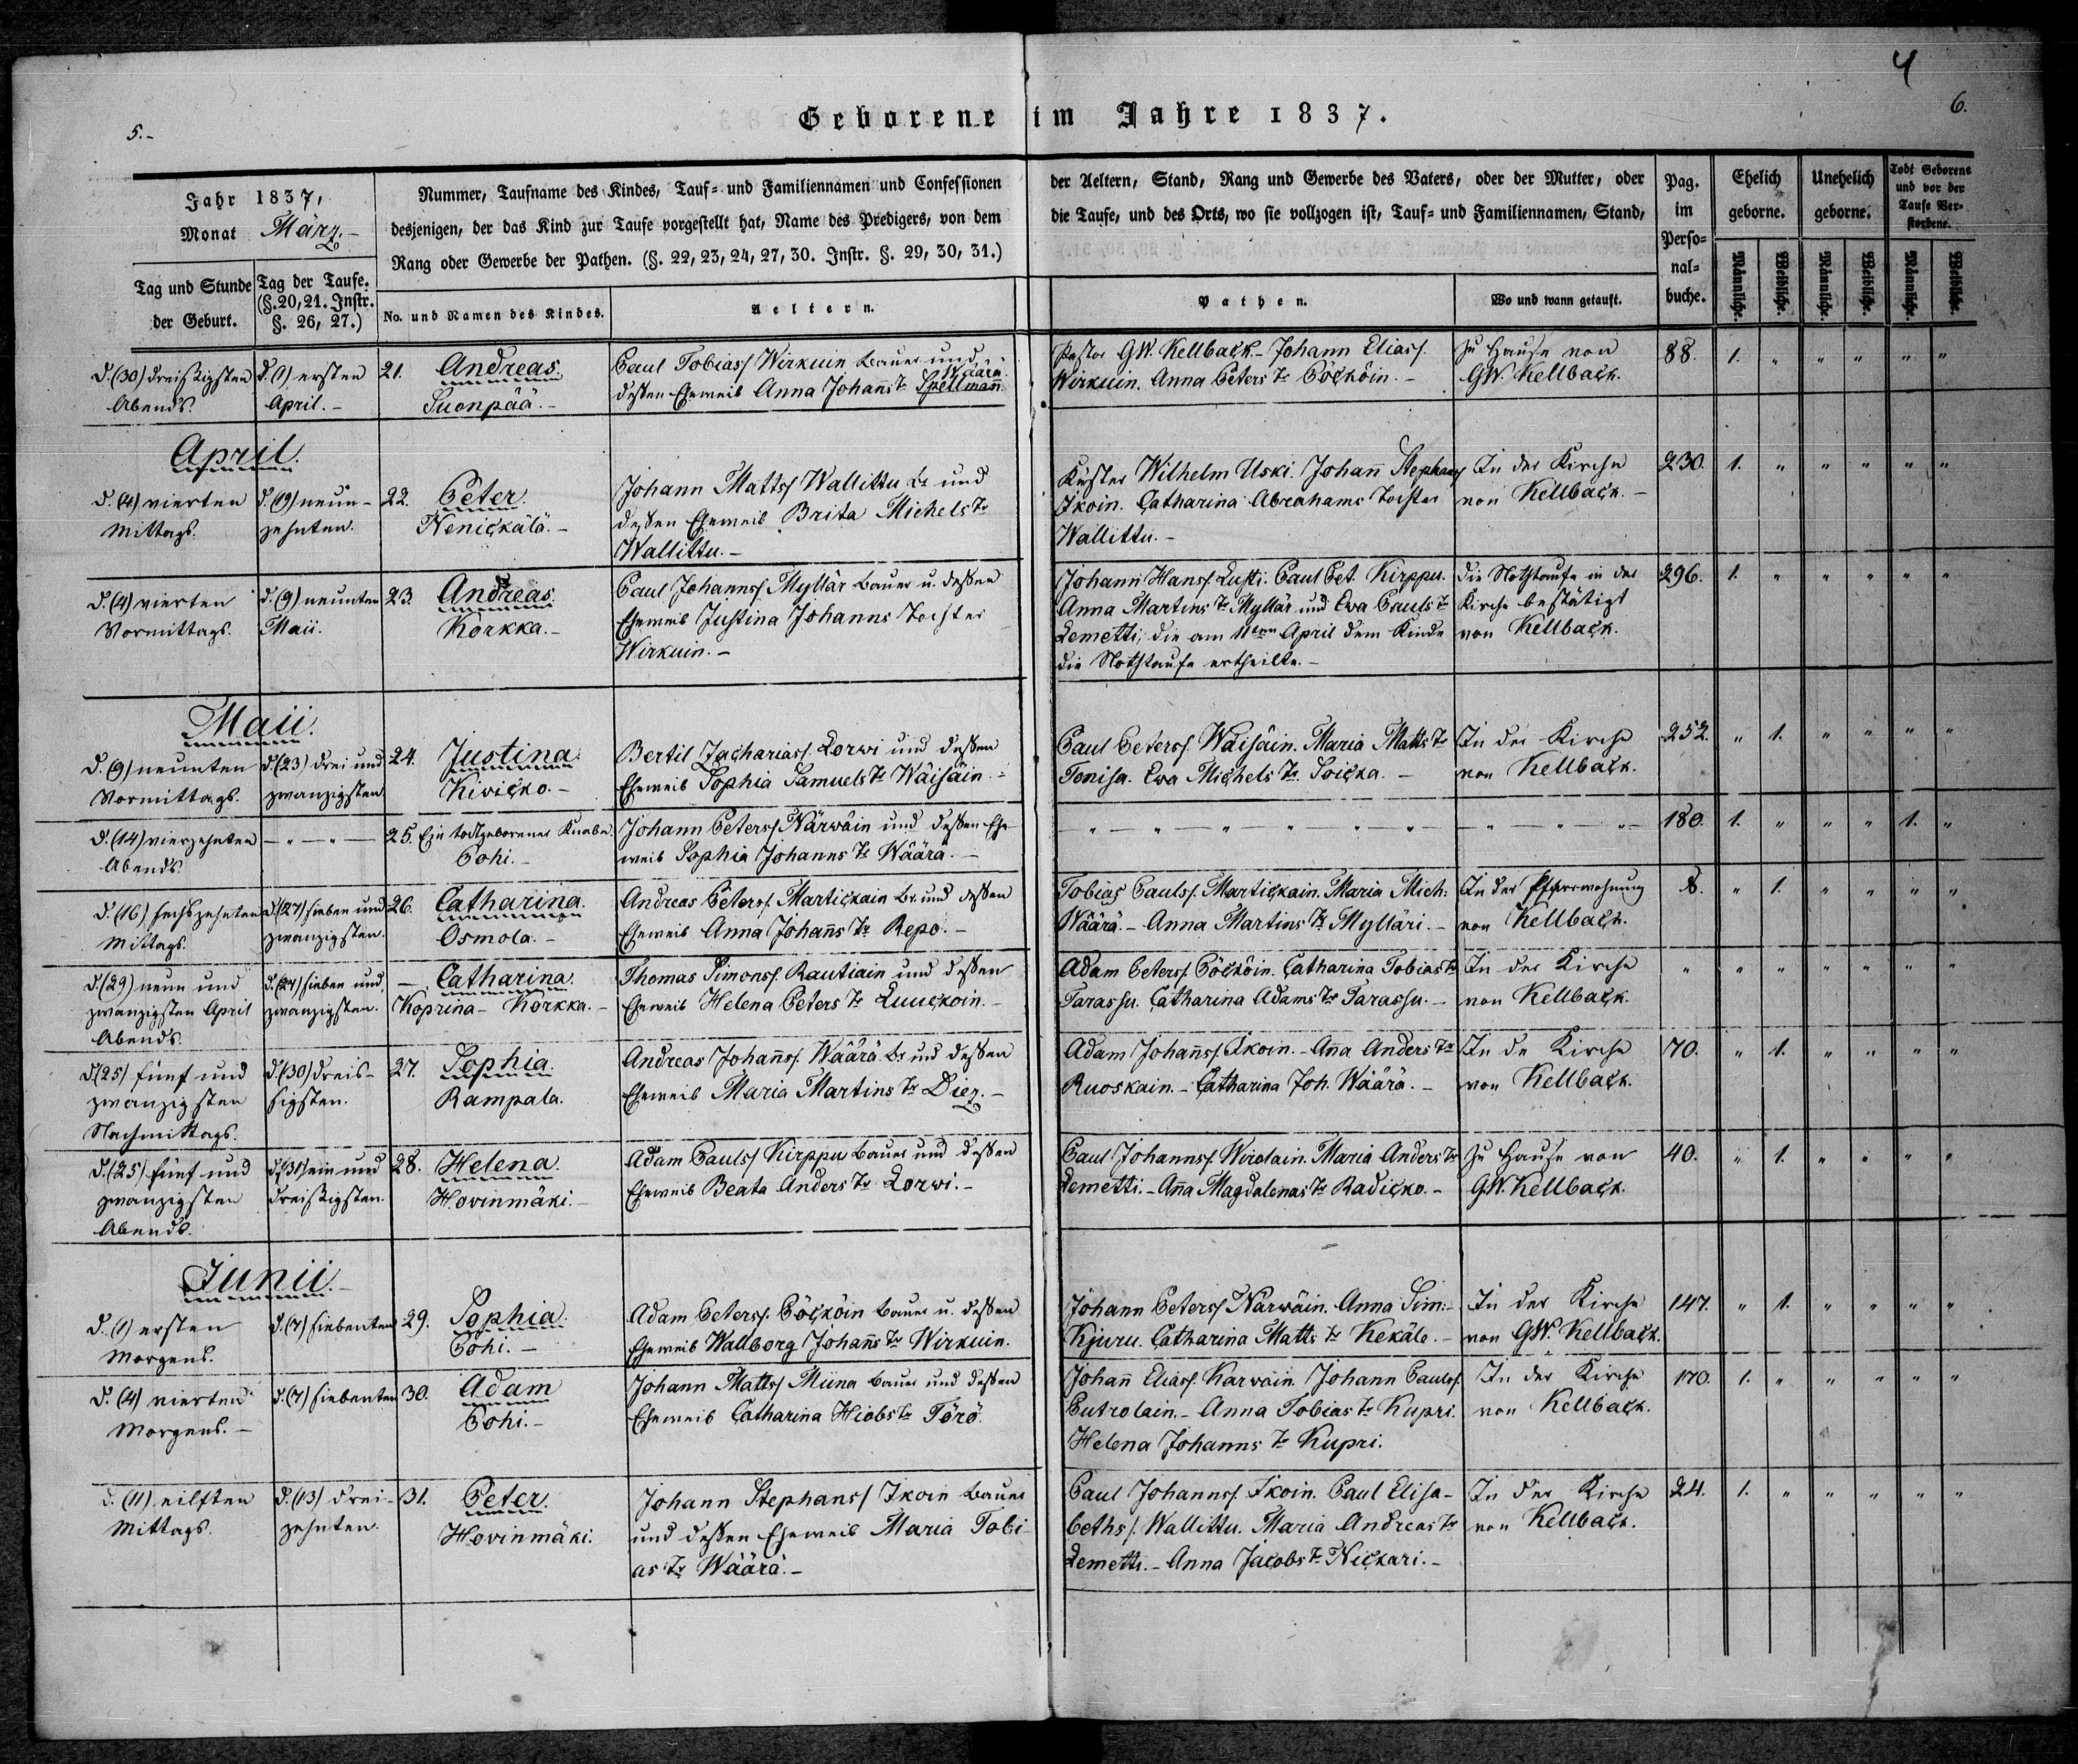 4
5.-
Geborene im Jahre 1837.
6.
Jahr 1837,
Monat März.-
Tag und Stunde der Geburt.
Tag der Taufe. (§.20,21. Instr. §. 26, 27.)
Nummer, Taufname des Kindes, Tauf- und Familiennamen und Confessionen
desjenigen, der das Kind zur Taufe vorgestellt hat, Name des Predigers, von dem
Rang oder Gewerbe der Pathen. (§. 22, 23, 24, 27, 30. Instr. §. 29, 30, 31.)
No. und Namen des Kindes.
Aeltern.
der Aeltern, Stand, Rang und Gewerbe des Vaters, oder der Mutter, oder
die Taufe, und des Orts, wo sie vollzogen ist, Tauf- und Familiennamen, Stand,
Pathen.
Wo und wann getauft.
Pag. im Perso-nal-buche.
Ehelich geborne.
Unehelich geborne.
Todt Geborene und vor der Taufe Ver-storbene.
Männliche. Weibliche. Männliche. Weibliche. Männliche. Weibliche.
d. (30) dreißigsten
Abends.
d. (1) ersten
April.-
21. Andreas.
Suonpää.-
Paul Tobiass Wirkuin Bauer und
Wäärä.
dessen Eheweib Anna Johans Tr. Spellmann
Pastor GW. Kellback.- Johann Eliass.
Wirkuin. Anna Peters Tr. Pöcköin.-
Zu Hause von
GW. Kellback.
88. 1. " " " " "
April.
d. (4) vierten
Mittags.
d. (19) neun-
zehnten.
22. Peter.
Henickälä.-
Johann Mattss Wallittu Br und
dessen Eheweib Brita Michels Tr
Wallittu.-
Küster Wilhelm Uski. Johann Stephans
Ikoin. Catharina Abrahams Tochter
Wallittu.-
In der Kirche
von Kellback.-
230. 1. " " " " "
d. (4) vierten
Vormittags.
d. (9) neunten
Maii.
23. Andreas.
Korkka.-
Paul Johannss. Myllär Bauer u. dessen
Eheweib Justina Johanns Tochter
Wirkuin.-
Johann Hanss. Lusti. Paul Pet. Kirppu.
Anna Martins Tr. Myllär und Ewa Pauls Tr
Lemetti, die am 11ten April dem Kinde
die Nothtaufe ertheilte.-
die Nothtaufe in der
Kirche bestätigt
von Kellback.
296. 1. " " " " "
Maii.
d. (9) neunten
Vormittags.
d. (23) drei und
zwanzigsten.
24. Justina
Kivicko.-
Bertil Zacharias. Lorwi und dessen
Eheweib Sophia Samuels Tr Wäisäin.-
Paul Peterss. Wäisäin. Maria Matts Tr
Tenisa. Ewa Michels Tr. Soicka.-
In der Kirche
von Kellback.
252. " 1. " " " "
d. (14) vierzehnten
Abends.
- " - " -
25. Ein todtgeborener Knabe.
Pohi.-
Johann Peterss Närwäin und dessen Ehe-
weib Sophia Johanns Tr Wäärä.-
- " - " - " - " - " -
- " - " - " -
180. 1. " " " 1. "
d. (16) sechszehnten
Mittags.
d. (27) sieben und
zwanzigsten.
26. Catharina.
Osmola.-
Andreas Peterss. Martickain Br. und dessen
Eheweib Anna Johañs Tr Repo.-
Tobias Paulss. Martickain. Maria Mich:
Wäärä.- Anna Martins Tr Mylläri.-
In der Pfarrwohnung
von Kellback.
8. " 1. " " " "
d. (29) neun und
zwanzigsten April
Abends.
d. (27) sieben und
zwanzigsten.
- Catharina.
Koprina- Korkka.-
Thomas Simonss. Rautiain und dessen
Eheweib Helena Peters Tr Luuckoin.-
Adam Peterss. Pöcköin. Catharina Tobias Tr
Tarassu. Catharina Adams Tr Tarassu.-
In der Kirche
von Kellback.
" " " " " " "
d. (25) fünf und
zwanzigsten
Nachmittags.
d. (30) dreis-
sigsten.
27. Sophia.
Rampala.
Andreas Johañss. Wäärä Br und dessen
Eheweib Maria Martins Tr Diez.-
Adam Johañss. Ikoin.- Aña Anders Tr
Ruoskain.- Catharina Joh. Wäärä.-
In de Kirche
von Kellback.
70. " 1. " " " "
d. (25) fünf und
zwanzigsten
Abends.
d. (31) ein und
dreißigsten.
28. Helena.
Hovinmäki.-
Adam Paulss Kirppu Bauer und dessen
Eheweib Beata Anders Tr Lorwi.-
Paul Johannss. Wirolain. Maria Anders Tr
Lemetti.- Aña Magdalenas Tr Radicko.-
Zu Hause von
GW. Kellback.
40. " 1. " " " "
Junii.-
d. (1) ersten
Morgens.
d. (7) siebenten
29. Sophia.
Pohi.-
Adam Peterss. Pöcköin Bauer u. dessen
Eheweib Wallborg Johañs Tr Wirkuin.
Johann Peterss Närwäin. Anna Sim:-
Kjuru. Catharina Matts Tr Kekäle.-
In der Kirche
von GW. Kellback.
147. " 1. " " " "
d. (4) vierten
Morgens.-
d. (7) siebenten
30. Adam
Pohi.-
Johann Mattss Miina Bauer und dessen
Eheweib Catharina Hiobs Tr Törö.
Johañ Eliass. Karwain. Johann Paulss.
Putrolain.- Anna Tobias Tr Kupri.
Helena Johanns Tr Kupri.
In der Kirche
von Kellback.
170. 1. " " " " "
d. (11) eilften
Mittags.
d. (13) drei-
zehnten.
31. Peter.
Hovinmäki.
Johann Stephanss Ikoin Bauer
und dessen Eheweib Maria Tobi-
as Tr Wäärä.-
Paul Johannss. Ikoin. Paul Elisa-
beths/. Wallittu. Maria Andreas Tr
Lemetti.- Anna Jacobs Tr Nickari.-
In der Kirche
von Kellback.
24. 1. " " " " "